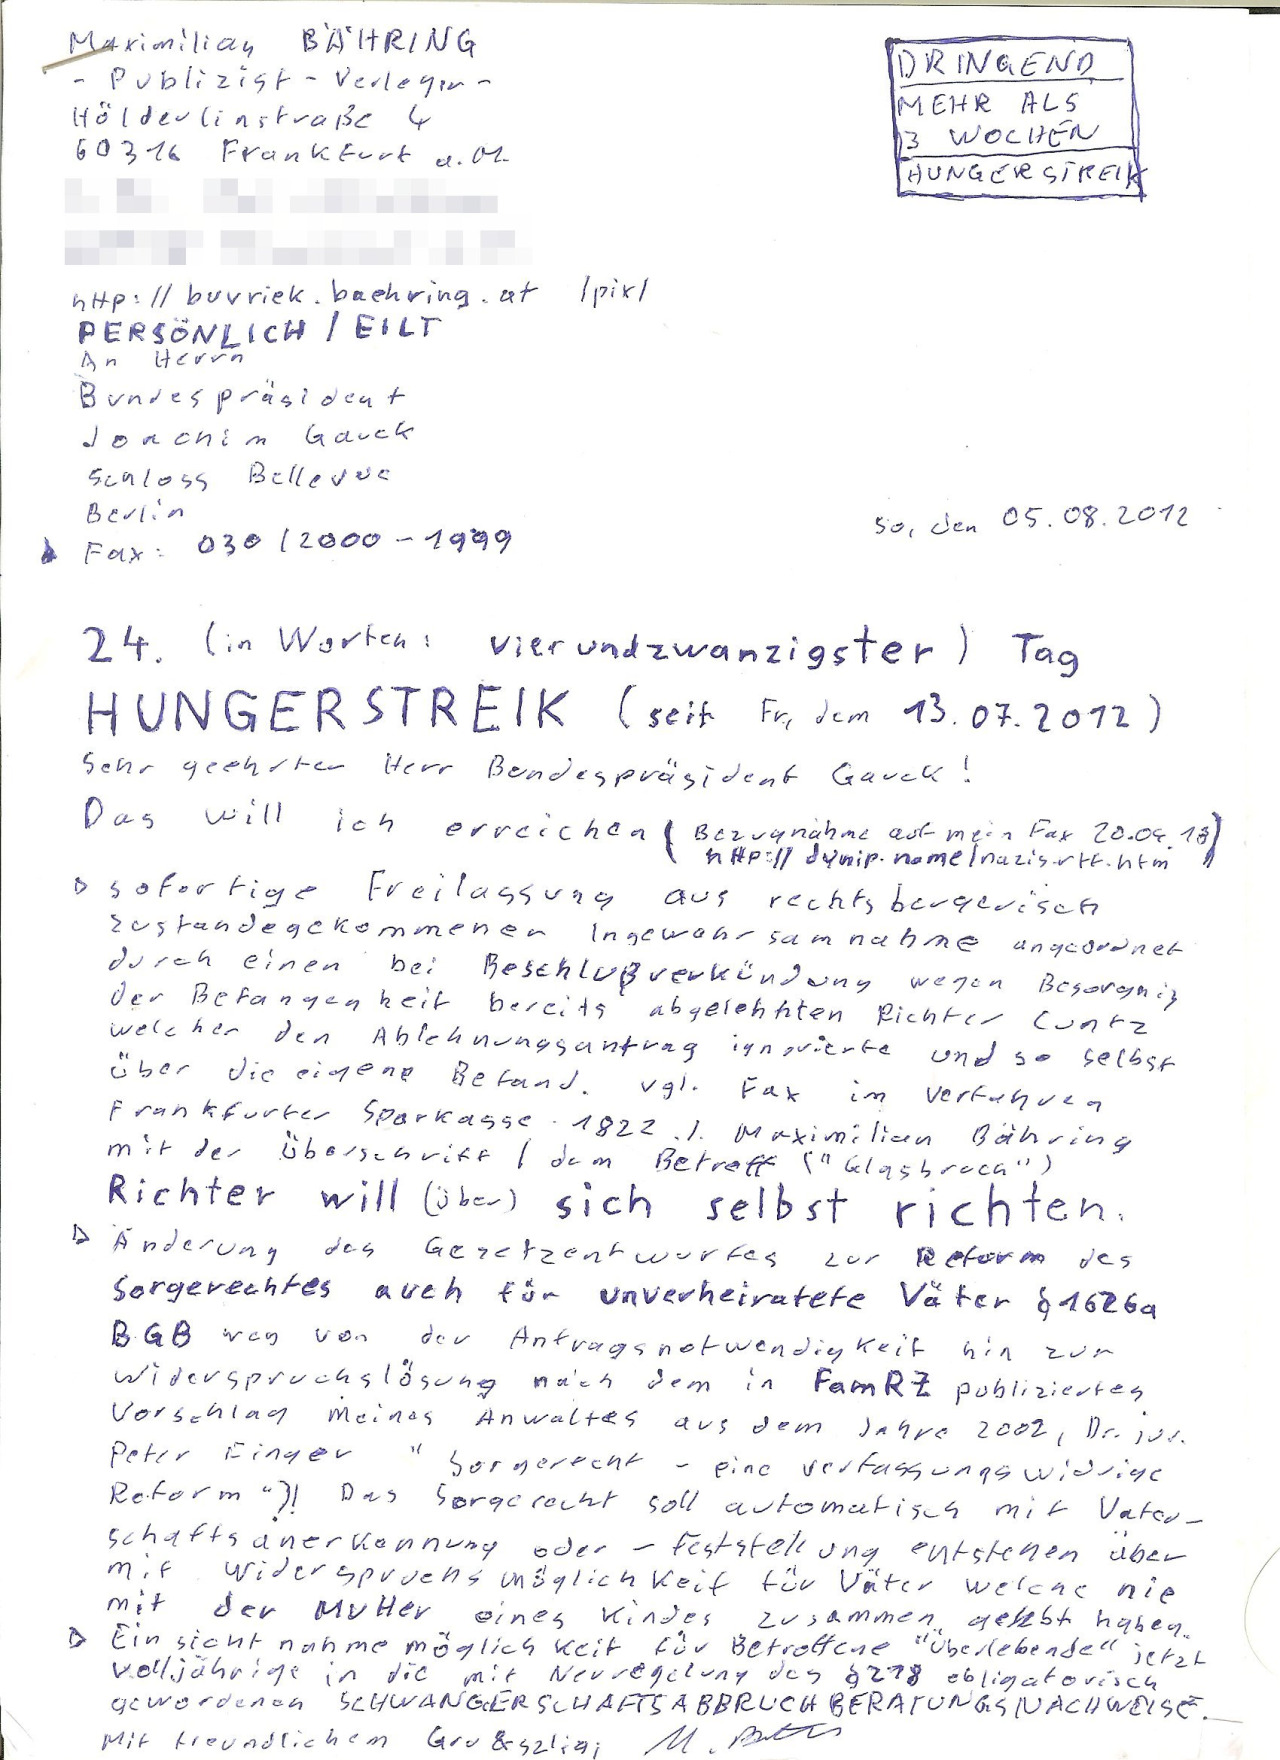 Maximilian BÄHRING
- Publizist - Verleger -
Hölderlinstraße 4
60316 Frankfurt a.M.
DRINGEND
MEHR ALS
3 WOCHEN
HUNGERSTREIK
http://buvriek.baehring.at /pix/
PERSÖNLICH / EILT
An Herrn
Bundespräsident
Joachim Gauck
Schloss Bellevue
Berlin
Fax: 030 / 2000 - 1999
So, den 05.08.2012
24. (in Worten: vierundzwanzigster) Tag
HUNGERSTREIK (seit Fr, dem 13.07.2012)
Sehr geehrter Herr Bundespräsident Gauck!
Das will ich erreichen (Bezugnahme auf mein Fax
http://dynip.name/nazis-rtf.htm)
sofortige Freilassung aus rechtsbeugerisch
zustandegekommener Ingewahrsamnahme angeordnet
durch einen bei Beschlußverkündung wegen Besorgnis
der Befangenheit bereits abgelehnten Richter Cuntz
welcher den Ablehnungsantrag ignorierte und so selbst
über die eigene Befand. vgl. Fax im Verfahren
Frankfurter Sparkasse 1822 ./. Maximilian Bähring
mit der Überschrift / dem Betreff ("Glasbruch")
Richter will (über) sich selbst richten.
Änderung des Gesetzentwurfes zur Reform des
Sorgerechtes auch für unverheiratete Väter §1626a
BGB weg von der Antragsnotwendigkeit hin zur
Widerspruchslösung nach dem in FamRZ publizierten
Vorschlag meines Anwaltes aus dem Jahre 2002, Dr. jur.
Peter Finger "Sorgerecht - eine verfassungswidrige
Reform"?! Das Sorgerecht soll automatisch mit Vater-
schaftsanerkennung oder -feststellung entstehen aber
mit Widerspruchsmöglichkeit für Väter welche nie
mit der Mutter eines Kindes zusammen gelebt haben.
Einsichtnahmemöglichkeit für Betroffene "Überlebende" jetzt
volljährige in die mit Neuregelung des §218 obligatorisch
gewordenen SCHWANGERSCHAFTSABBRUCHBERATUNGSNACHWEISE.
Mit freundlichem